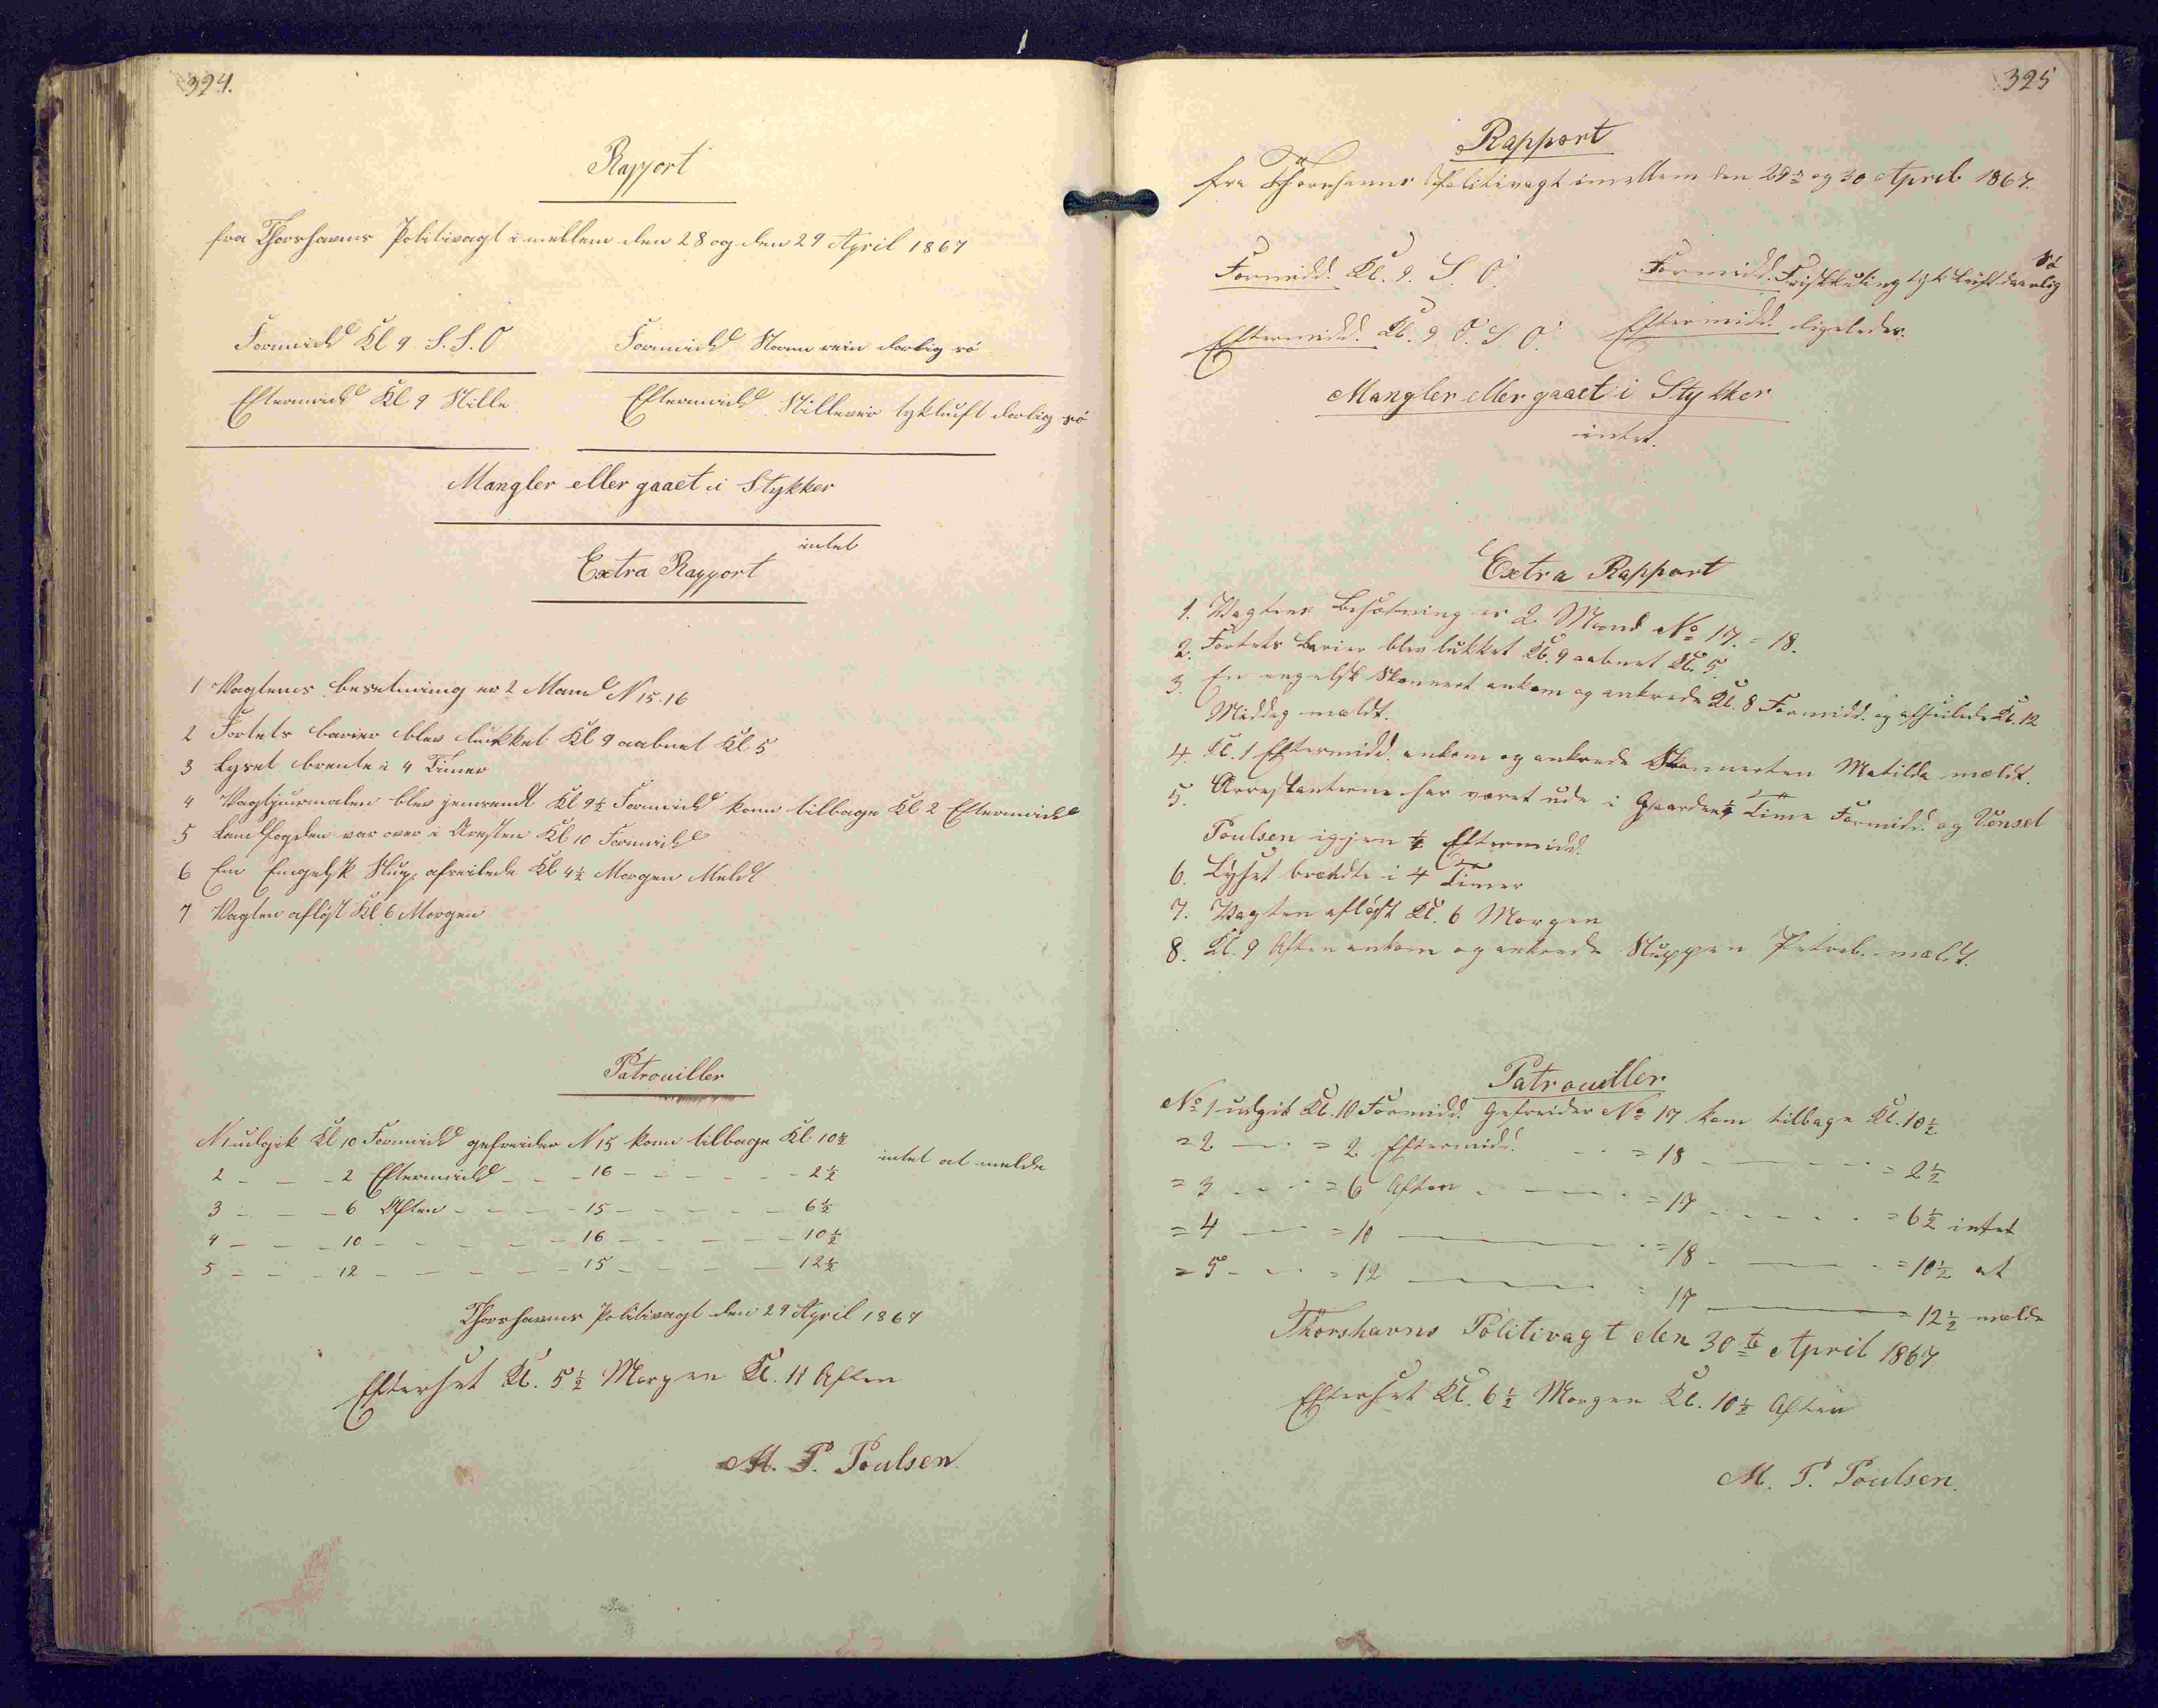 324.
Rapport
fra Thorshavns Politivagt imellem den 28 og den 29 April 1867
Formidd Kl 9 S.S.O
Formidd Storm rein dorlig sö
Eftermidd Kl 9 Stille
Eftermidd Stillevär tykluft dorlig sö
Mangler eller gaaet i Stykker
intet
Extra Rapport
1 Vagtens besetning er 2 Mand N 15. 16
2 Fortets barier blev lukket Kl 9 aabnet Kl 5
3 Lyset brente i 4 Timer
4 Vagtjurnalen blev jemsendt Kl 9½ Formidd kom tilbage Kl 2 Eftermidd
5 Landfogden var over i Aresten Kl 10 Formidd
6 En Engelsk Slup afseilede Kl 4½ Morgen Meldt
7 Vagten aflöst Kl 6 Morgen
Patrouiller
N 1 udgik Kl 10 Formidd gefreider N 15 kom tilbage Kl 10½
2 – – – 2 Eftermidd – – – 16 – – – – – – 2½ intet at melde
3 – – – 6 Aften – – – – 15 – – – – – – 6½
4 – – – 10 – – – – – – 16 – – – – – – 10½
5 – – – 12 – – – – – – 15 – – – – – – 12½
Thorshavns Politivagt den 29 April 1867
Efterset Kl. 5½ Morgen Kl. 11 Aften
M. P. Poulsen.
325
Rapport
fra Thorshavns Politivagt imellem den 29de og 30 April 1867.
Formidd. Kl. 9. S. O.
Formidd. Friskkuling tyk Luft daarlig Sö
Eftermidd. Kl. 9 O. S. O.
Eftermidd. ligeledes.
Mangler eller gaaet i Stykker
intet.
Extra Rapport
1. Vagtens Besötning er 2 Mand No 17. = 18.
2. Fortets Barier blev lukket Kl. 9 aabnet Kl. 5.
3. En engelsk Skonnert ankom og ankrede Kl. 8 Formidd. og afseilede Kl. 12
Middag mældt.
4. Kl. 1 Eftermidd. ankom og ankrede Skonnerten Matilda mældt.
5. Arrestanterne har været ude i Gaarden ½ Time Formidd. og Vensel
Poulsen igjen ½ Eftermidd.
6. Lyset brændte i 4 Timer
7. Vagten aflöst Kl. 6 Morgen
8. Kl. 9 Aften ankom og ankrede Sluppen mældt.
Patrouiller
No 1 udgik Kl. 10 Formidd. Gefreider No 17 kom tilbage Kl. 10½
= 2 — · = 2 Eftermidd. · – · = 18 – — · – · = 2½
= 3 – · – · = 6 Aften – · — · = 17 – · – · – · = 6½ intet
= 4 — · = 10 — · = 18 – — · = 10½ at
= 5 – · – · = 12 — = 17 — = 12½ melde
Thorshavns Politivagt den 30te April 1867
Efterset Kl. 6½ Morgen Kl. 10½ Aften
M. P. Poulsen.